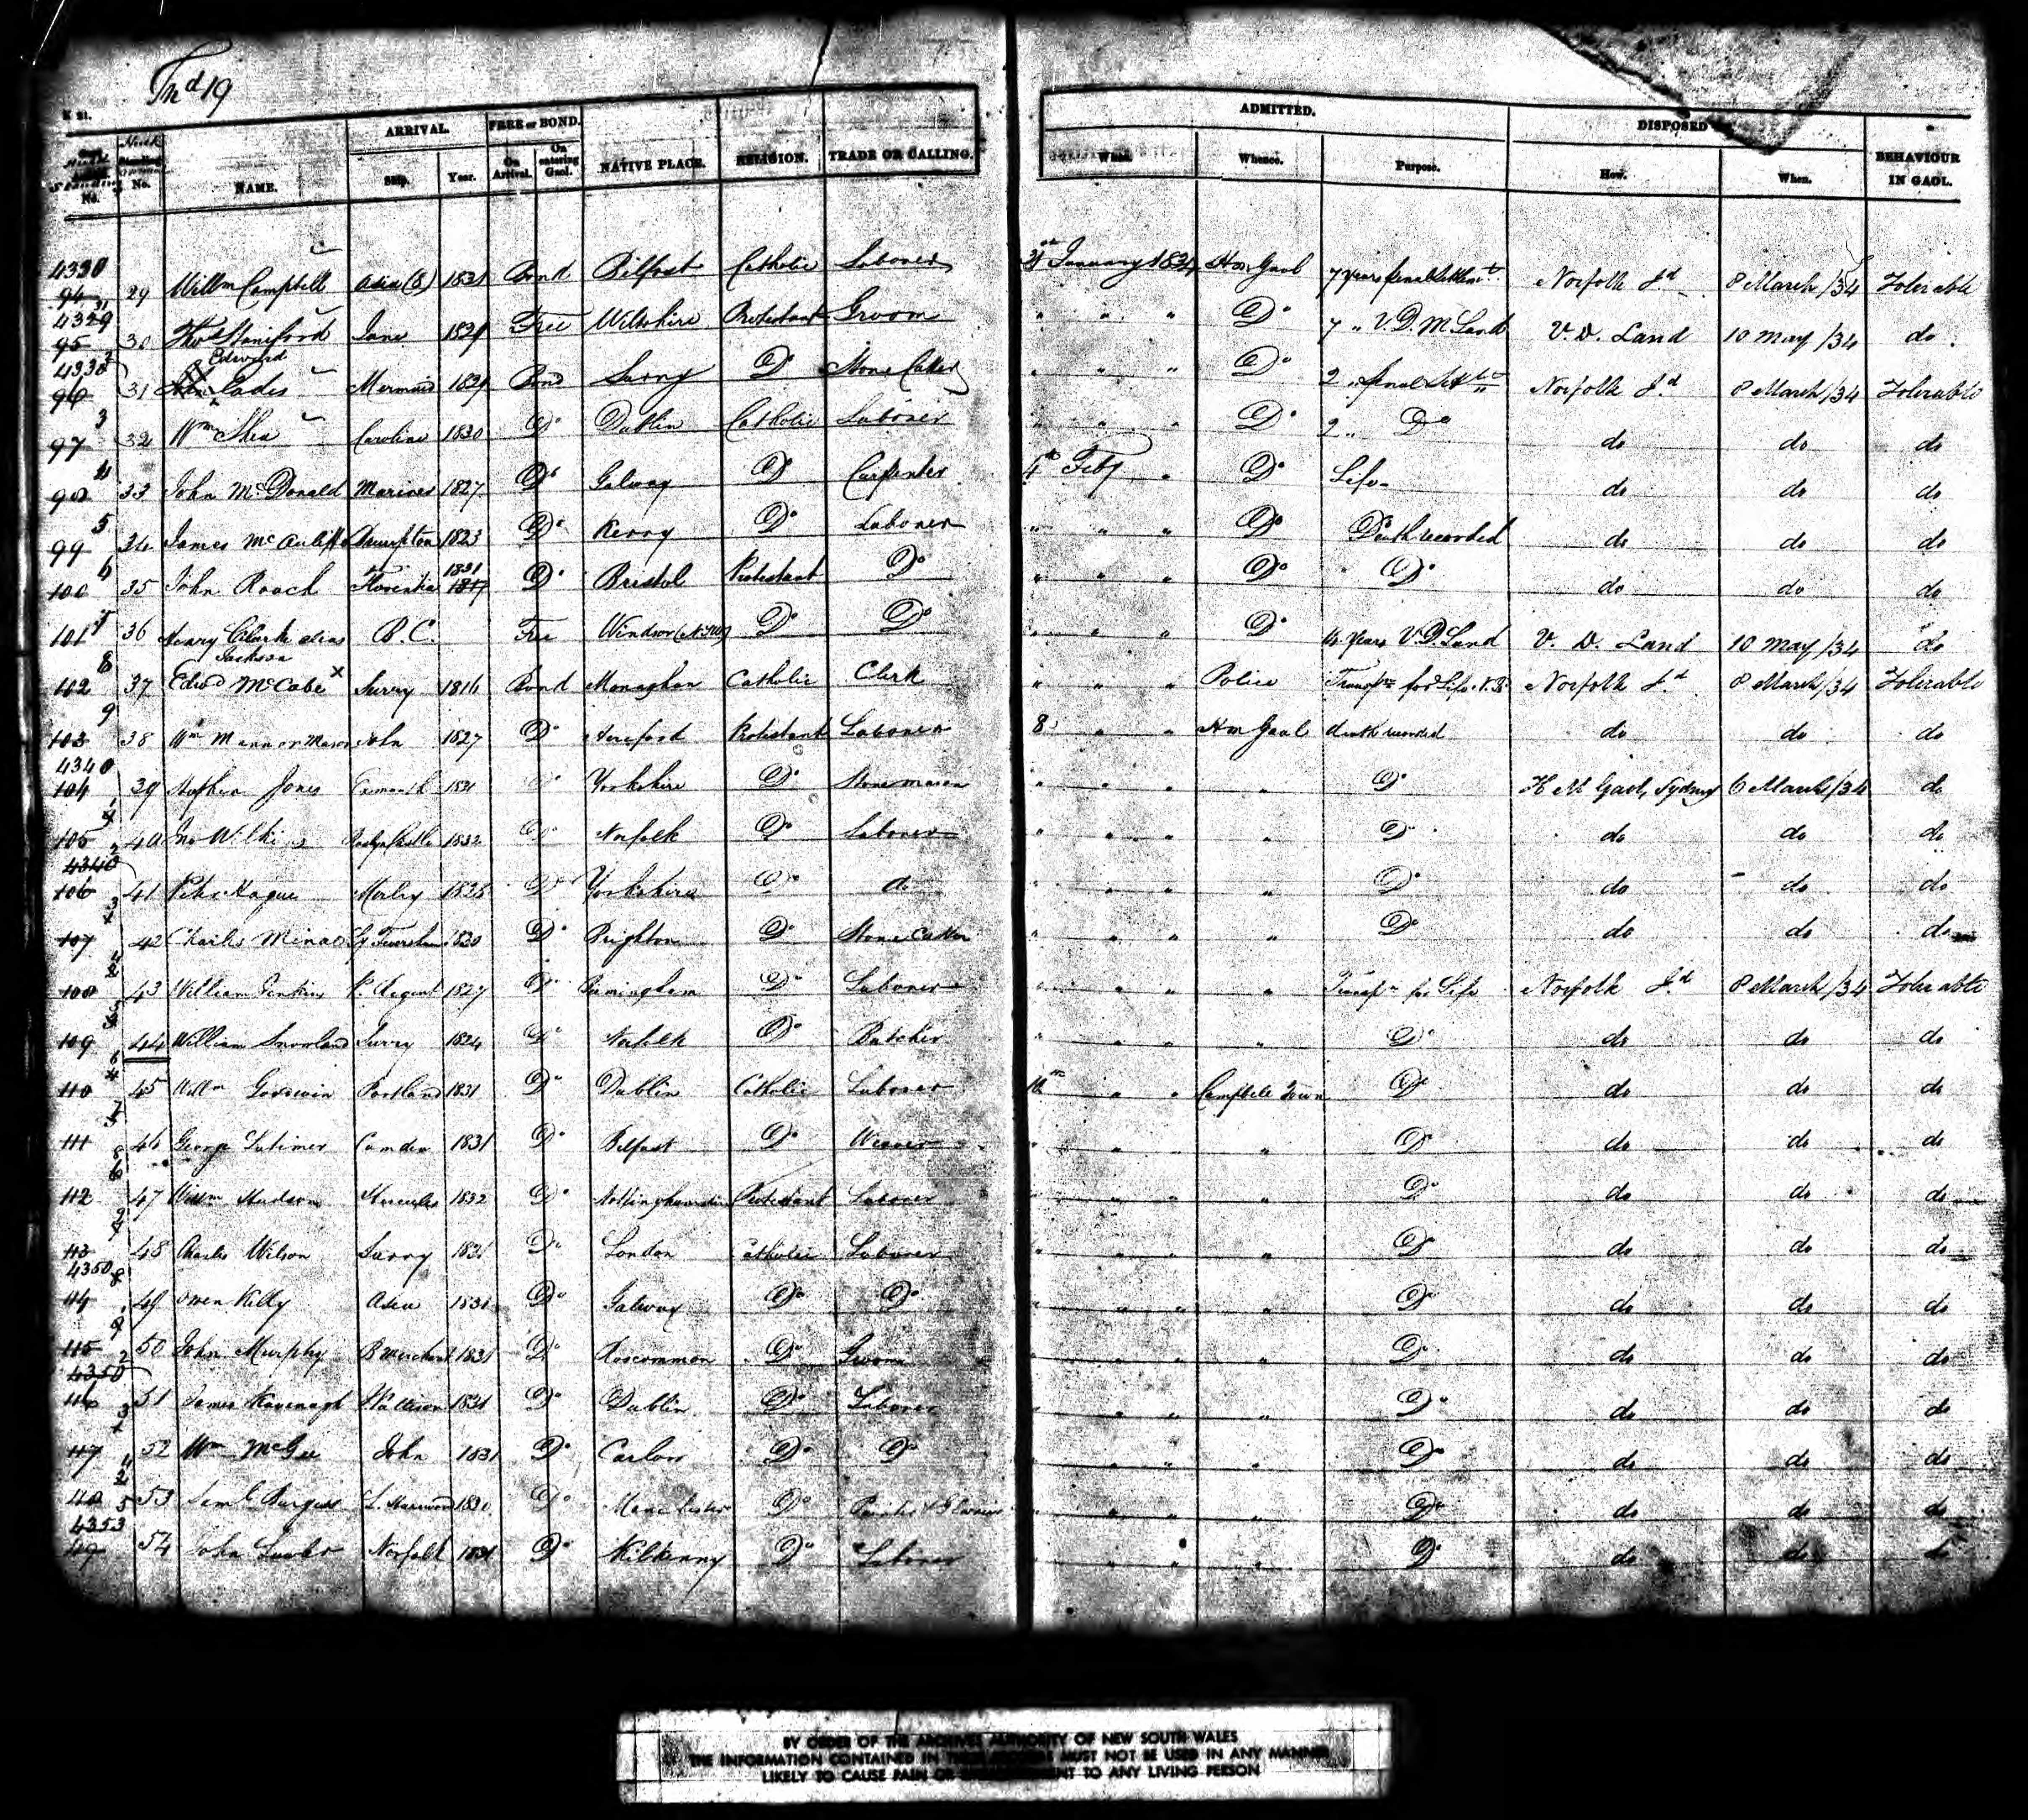 Fnd 19
ARRIVAL. FREE or BOND. ADMITTED. DISPOSED
No. Standing No. NAME. Ship. Year. On Arrival. On entering Gaol. NATIVE PLACE. RELIGION. TRADE OR CALLING. When. Whence. Purpose. How. When. BEHAVIOUR IN GAOL.
4330
94 29 Willm Campbell Asia (8) 1831 Bond Belfast Catholic Laborer 31st January 1834 Hm Gaol 7 years penal Settlemt Norfolk Id 8 March /34 Tolerable
4329
95 30 Thos Staniford Jane 1829 Free Wiltshire Protestant Groom " " " Do 7 " V.D.M Land V.D. Land 10 May /34 do
Edward
96 31 John Eades Mermaid 1829 Bond Surry Do Stone Cutter " " " Do 2 " penal Settlt Norfolk Id 8 March /34 Tolerable
97 3 32 Wm Shea Caroline 1830 Do Dublin Catholic Laborer " " " Do 2 " Do do do do
98 4 33 John McDonald Mariner 1827 Do Galway Do Carpenter 4th Feby " Do Life do do do
99 5 34 James McAuliffe 1823 Do Kerry Do Laborer " " " Do Death recorded do do do
1831
100 6 35 John Roach Florentia 1817 Do Bristol Protestant Do " " " Do Do do do do
101 7 36 Henry Clark alias B.C. Free Windsor (NSW) Do Do " " " Do 14 years V.D. Land V. D. Land 10 May /34 do
Jackson
102 8 37 Edwd McCabe x Surry 1816 Bond Monaghan Catholic Clerk " " " Police Transpn for Life N.I. Norfolk Id 8 March /34 Tolerable
103 9 38 Wm Mann or Mason John 1827 Do Hereford Protestant Laborer 8 " " Hm Gaol death recorded do do do
4340
104 39 Stephen Jones Exmouth 1831 Do Yorkshire Do Stone mason " " " " Do H M Gaol, Sydney 6 March /34 do
105 40 Jno Wilkins Roslyn Castle 1832 Do Norfolk Do Laborer " " " " Do do do do
4340
106 41 Peter Hague Morley 1828 Do Yorkshire Do do " " " " Do do do do
107 42 Charles Minar Ly Feversham 1830 Do Brighton Do Stone Cutter " " " " Do do do do
108 43 William Jenkins P. Regent 1827 Do Birmingham Do Laborer " " " " Transpn for Life Norfolk Id 8 March /34 Tolerable
109 44 William Snowland Surry 1824 Do Norfolk Do Butcher " " " " Do do do do
110 45 Willm Goodwin Portland 1831 Do Dublin Catholic Laborer 10th " " Campbell Town Do do do do
111 46 George Latimer Camden 1831 Do Belfast Do Weaver " " " " Do do do do
112 47 Willm Hudson Hercules 1832 Do Nottinghamshire Protestant Laborer " " " " Do do do do
113 48 Charles Wilson Surry 1831 Do London Catholic Laborer " " " " Do do do do
4350
114 49 Owen Kelly Asia 1831 Do Galway Do Do " " " " Do do do do
115 50 John Murphy B Merchant 1831 Do Roscommon Do Groom " " " " Do do do do
4350
116 51 James Kavenagh 1831 Do Dublin Do Laborer " " " " Do do do do
117 52 Wm McGee John 1831 Do Carlow Do Do " " " " Do do do do
53 Saml Burgess L. Harewood 1831 Do Manchester Do " " " " Do do do do
4353
119 54 John Norfolk 1831 Do Kilkenny Do Laborer " " " " Do do do do
BY ORDER OF THE ARCHIVES AUTHORITY OF NEW SOUTH WALES
THE INFORMATION CONTAINED IN THESE RECORDS MUST NOT BE USED IN ANY MANNER
LIKELY TO CAUSE PAIN OR TO ANY LIVING PERSON